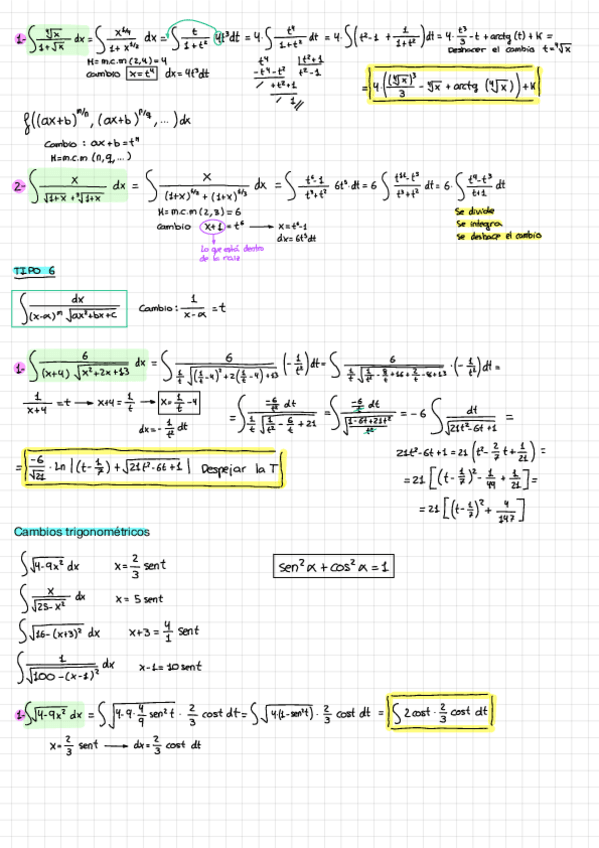 1- ∫ ∜x/(1+√x) dx = ∫ x^(1/4)/(1+x^(1/2)) dx = ∫ t/(1+t²) 4t³dt = 4·∫ t⁴/(1+t²) dt = 4·∫(t²-1 + 1/(1+t²))dt = 4·t³/3 -t + arctg(t) + K =
M=m.c.m(2,4)=4
Deshacer el cambio t=∜x
cambio x=t⁴ dx=4t³dt
t⁴ |t²+1
-t⁴-t² t²-1
/ +t²+1
/ 1
= 4·((∜x)³/3 - ∜x + arctg(∜x)) + K
∫((ax+b)^(m/n), (ax+b)^(p/q), ...)dx
Cambio: ax+b=tᴹ
M=m.c.m(n,q,...)
2- ∫ x/(√(1+x) + ∛(1+x)) dx = ∫ x/((1+x)^(1/2) + (1+x)^(1/3)) dx = ∫ (t⁶-1)/(t³+t²) 6t⁵ dt = 6∫ (t¹¹-t⁵)/(t³+t²) dt = 6·∫ (t⁹-t³)/(t+1) dt
M=m.c.m(2,3)=6
cambio x+1=t⁶ → x=t⁶-1
dx=6t⁵dt
Lo que está dentro
de la raíz
Se divide
Se integra
Se deshace el cambio
TIPO 6
∫ dx/((x-α)ᵐ √(ax²+bx+c)) Cambio: 1/(x-α) = t
1- ∫ 6/((x+4)√(x²+2x+13)) dx = ∫ 6/(1/t √((1/t-4)²+2(1/t-4)+13)) (-1/t²)dt = ∫ 6/(1/t √(1/t²-8/t+16+2/t-8+13)) ·(-1/t²)dt =
1/(x+4) = t → x+4=1/t → x=1/t-4
dx=-1/t² dt
= ∫ (-6/t² dt)/(1/t √(1/t²-6/t+21)) = ∫ (-6/t dt)/√((1-6t+21t²)/t²) = -6 ∫ dt/√(21t²-6t+1) =
21t²-6t+1=21(t²-2/7t+1/21) =
= -6/√21 · Ln|(t-1/7)+√(21t²-6t+1)| Despejar la T
=21[(t-1/7)²-1/49+1/21]=
=21[(t-1/7)²+4/147]
Cambios trigonométricos
∫√(4-9x²) dx x=2/3 sent
sen²α+cos²α=1
∫ x/√(25-x²) dx x=5sent
∫√(16-(x+3)²) dx x+3=4/1 sent
∫ 1/√(100-(x-1)²) dx x-1=10sent
1- ∫√(4-9x²) dx = ∫√(4-9·4/9 sen²t)·2/3 cost dt = ∫√(4(1-sen²t))·2/3 cost dt = ∫2cost·2/3 cost dt
x=2/3 sent → dx=2/3 cost dt